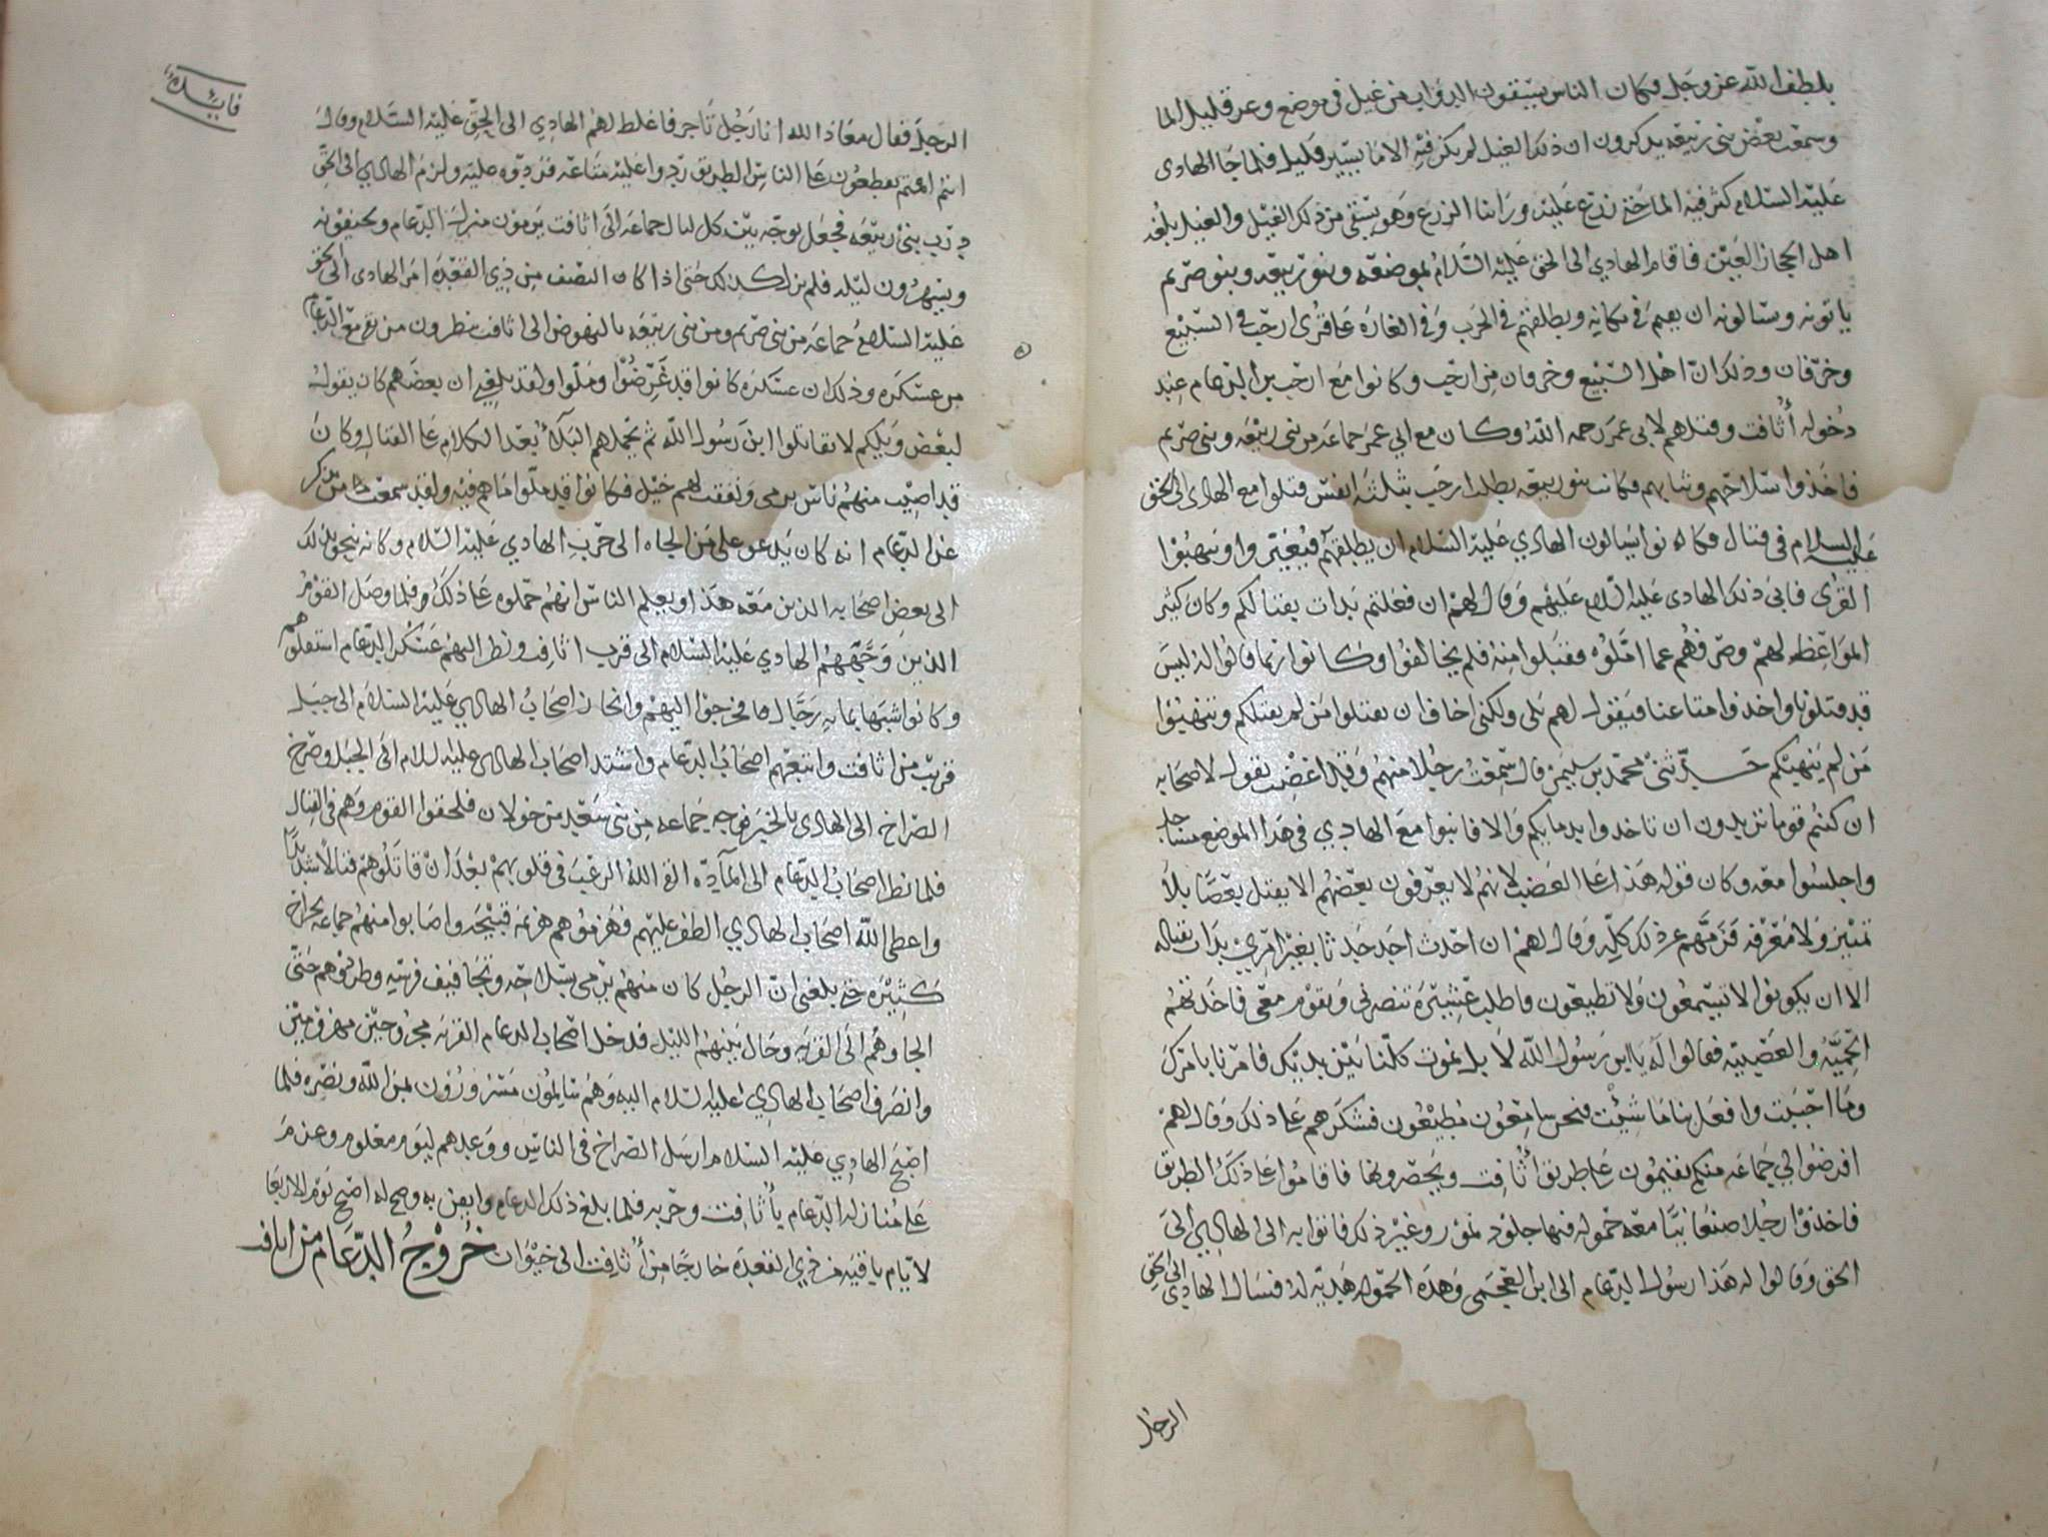 بلطف الله عز وجل وكان الناس يسقون الدواب من غيل في موضع وعر قليل الما
وسمعت بعض بني ربيعه يذكرون ان ذلك الغيل لم يكن فيه الا ما يسير قليل فلما جا الهادى
عليه السلام كثر فيه الما حتى زرع عليه وراينا الزرع وهو يسقى من ذلك الغيل والغيل بلغه
اهل الحجاز العين فاقام الهادي الى الحق عليه السلام بموضعه وبنو ربيعه وبنو صريم
ياتونه وسالونه ان يقيم في مكانه ويطلقهم في الحرب وفي الغاره عا قرى ارحب في السبيع
وخرفان وذلك ان اهل السبيع وخرفان من ارحب وكانوا مع ارحب الدعام عند
دخوله أثافت وقتلهم لابى عمر رحمه الله وكان مع ابي عمر جماعه من بني ربيعه وبنى صريم
فاخذوا سلاحهم وثيابهم فكانت بنو ربيعه يطلب ارحب بثلثه انفس قتلوا مع الهادى الى الحق
عليه السلام في قتال فكانوا يسالون الهادي عليه السلام ان يطلقهم فيغيروا وينهبوا
القرى فابى ذلك الهادى عليه السلام عليهم وقال لهم ان فعلتم بدات بقتالكم وكان كثير
المواعظ لهم وصرفهم عما املوه فقبلوا منه فلم يخالفوا وكانوا ربما قالوا له ليس
قد قتلونا واخذوا متاعنا فيقول لهم بلى ولكنى اخاف ان تقتلوا من لم يقتلكم وتنهبوا
من لم ينهبكم حدثنى محمد بن سليمن قال سمعت رجلا منهم وقد اغضب يقول لاصحابه
ان كنتم قوما تريدون ان تاخذوا بدمايكم والا فابنوا مع الهادي في هذا الموضع مساجد
واجلسوا معه وكان قوله هذا عا الغضب لانهم لا يعرفون بعضهم الا يقتل بعضا بلا
تمييز ولا معرفه فزمهم عن ذلك كله وقال لهم ان احدث احد حدثا بغير امرى بدات بقتاله
الا ان يكونوا لا تسمعون ولا تطيعون فاطلب عشيرة تنصرنى وتقوم معى فاخذتهم
الحميه والعصبيه فقالوا له يا ابن رسول الله لا بل نموت كلنا بين يديك فامرنا بامرك
وما احببت وافعل بنا ما شيت فنحن سامعون مطيعون فشكرهم عا ذلك وقال لهم
افرضوا لي جماعه منكم يقيمون عا طريق أثافت ويحصرونها فاقاموا عا ذلك الطريق
فاخذوا رجلا صنعانيا معه حموله فيها جلود نمور وغير ذلك فاتوا به الى الهادي الى
الحق وقالوا له هذا رسول الدعام الى ابن وهذه الحموله هديه له فسال الهادي الى الحق
الرجل
فايده
الرجل فقال معاذ الله انا رجل تاجر فاغلظ لهم الهادي الى الحق عليه السلام وقال
انتم تقطعون عا الناس الطريق ردوا عليه متاعه فردوه عليه ولزم الهادي الى الحق
درب بنى ربيعه فجعل يوجه بيت كل ليال جماعه الى اثافت يرمون منزل الدعام ويخيفونه
ويسهرون ليله فلم يزل كذلك حتى اذا كان النصف من ذي القعدة امر الهادى الى الحق
عليه السلام جماعه من بنى صريم ومن بنى ربيعه بالنهوض الى اثافت ينظرون من بقي مع الدعام
من عسكره وذلك ان عسكره كانوا قد غرضوا وملوا ولقد بلغني ان بعضهم كان يقول
لبعض ويلكم لا تقاتلوا ابن رسول الله ثم يحملهم البلا بعد الكلام عا القتال وكان
قد اصيب منهم ناس برمي ونفقت لهم خيل فكانوا قد ملوا ما هم فيه ولقد سمعت من يذكر
عن الدعام انه كان يدعو على من الجاه الى حرب الهادي عليه السلام وكانه
الى بعض اصحابه الذين معه هذا ويعلم الناس انهم حملوه عا ذلك فلما وصل القوم
الذين وجههم الهادي عليه السلام الى قرب اثافت ونظر اليهم عسكر الدعام استقلوهم
وكانوا شبيها بمايه رجال فخرجوا اليهم وانحاز اصحاب الهادي عليه السلام الى جبل
قريب من اثافت واتبعهم اصحاب الدعام واشتد اصحاب الهادى عليه السلام الى الجبل وصرخ
الصراخ الى الهادى بالخبر فوجه جماعه من بنى سعيد من خولان فلحقوا القوم وهم في القتال
فلما نظر اصحاب الدعام الى الماده القى الله الرعب في قلوبهم بعد ان قاتلوهم قتالا شديدا
واعطى الله اصحاب الهادي الظفر عليهم فهزموهم هزيمه قبيحه واصابوا منهم جماعه بجراح
كثيره حتى بلغني ان الرجل كان منهم يرمى بسلاحه ونجا فرسه وطردوهم حتى
الجاوهم الى القريه وحال بينهم الليل فدخل اصحاب الدعام القريه مجروحين مهزومين
وانصرف اصحاب الهادي عليه السلام اليه وهم سالمون مسرورون بمن الله ونصره فلما
اصبح الهادي عليه السلام ارسل الصراخ في الناس ووعدهم ليوم معلوم وعزم
عا منازله الدعام بأثافت وحربه فلما بلغ ذلك الدعام وايقن به وصح له اصبح يوم الاربعا
لايام باقيه من ذي القعدة خارجا من أثافت الى خيوان خروج الدعام من اثافت